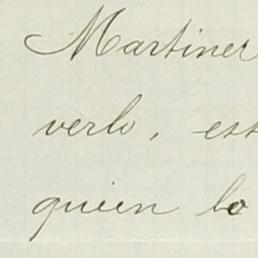 Martiner
verlo, est
quien lo